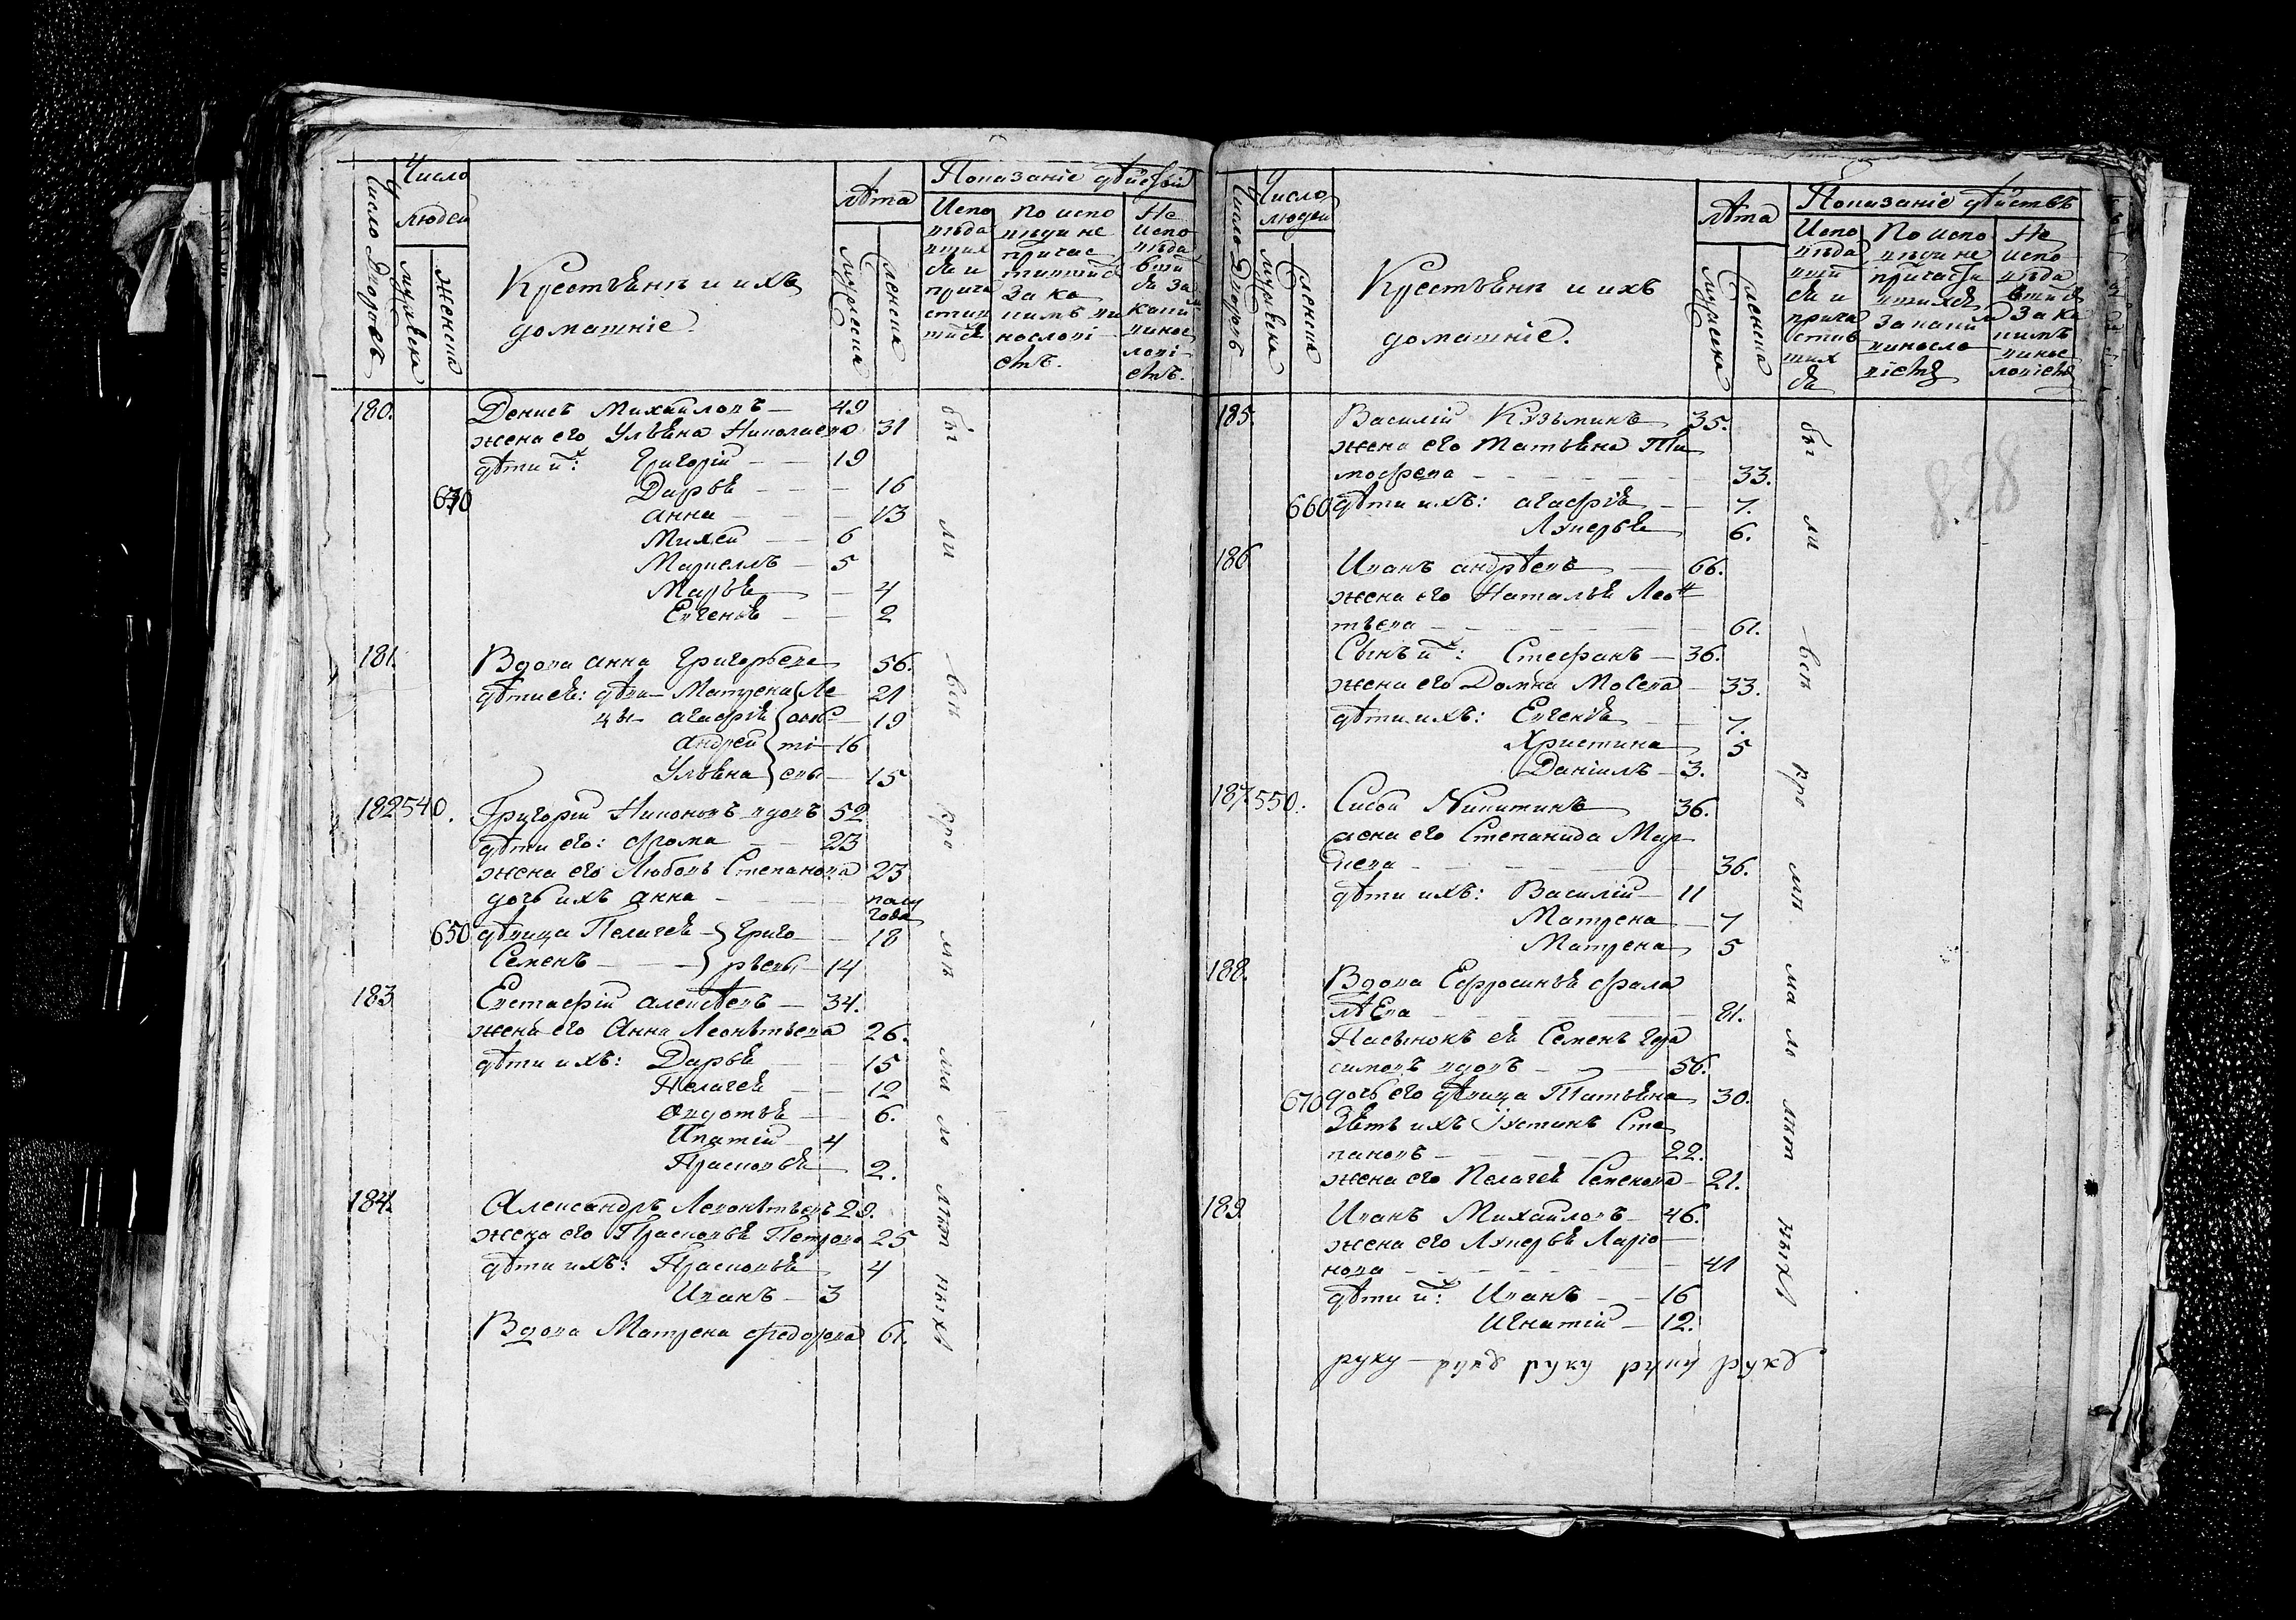 Число Дворовъ
Число людей
мужеска
женска
Крестьѣнѣ и ихъ
домашніе.
лѣта
мужеска
женска
Показаніе дѣйствій
Испо
вѣда
вших
сѧ и
прича
стив
шихсѧ
По испо
вѣди не
причас
тившихсѧ
за ка
кимъ ви
нослові
емъ.
Не
испо
вѣда
вши
сѧ за
каким
винос
лові
емъ.
180. Денисъ Михайловъ — 49
жена его Ульѧна Николаева 31
дѣти их: Григорій — 19
630 Дарьѧ — 16
Анна — 13
Михей — 6
Маркелъ — 5
Марьѧ — 4
Евгеніѧ — 2
181. Вдова Анна Григорьева 56.
дѣти еѧ: дѣви- Матрена Ле 21
цы- Агафіѧ онъ 19
Андрей ті 16
Ульѧна евы 15
182 540. Григорій Никоновъ вдовъ 52
дѣти его: Фрома — 23
жена его Любовь Степанова 23
дочь ихъ Анна — полу
года
650 дѣвица Пелагеѧ Григо 18
Семенъ рьевы 14
183 Евстафій Алексѣевъ — 34.
жена его Анна Леонътьева 26.
дѣти ихъ: Дарьѧ — 15
Пелагеѧ — 12
Авдотьѧ — 6.
Ипатій — 4
Прасковьѧ — 2.
184. Александръ Левонътьевъ 29.
жена его Прасковьѧ Петрова 25
дѣти ихъ: Прасковьѧ 4
Иванъ — 3
Вдова Матрена Федорова 61.
бы ли всѣ кро мѣ ма ло лѣт ныхъ
Число Дворовъ
Число
людей
мужеска
женска
Крестьѣнѣ и ихъ
домашніе.
лѣта
мужеска
женска
Показаніе дѣйствъ
Испо
вѣда
вши
сѧ и
прича
стив
ших
сѧ
По испо
вѣди не
причасти
вшихсѧ
за каким
винословіемъ
Не
испо
вѣда
вшихсѧ
за ка
кимъ
винос
ловіемъ
185. Василій Кузьминъ 35.
жена его Татьѧна Ти
мофева — 33.
660 дѣти ихъ: Агафіѧ — 7.
Лукерьѧ 6.
186 Иванъ Андрѣевъ — 66.
жена его Натальѧ Леон
тьева — 61.
Сынъ их: Стефанъ — 36.
жена его Домна Мосева — 33.
дѣти ихъ: Евгеніѧ — 7.
Христина 5
Даніилъ — 3.
187 550. Сисой Никитинъ 36.
жена его Степанида Мар
кева — 36.
дѣти ихъ: Василій — 11
Матрена — 7
Матрена 5
188. Вдова Ефросиньѧ Фала
лѣева — 81.
Пасынокъ еѧ Семенъ Гера
симовъ вдовъ — 56.
670 дочь его дѣвица Татьѧна 30.
Зѧть ихъ Іустинъ Сте
пановъ — 22.
жена его Пелагеѧ Семенова — 21.
189. Иванъ Михайловъ — 46.
жена его Лукерьѧ Ларіо
нова — 41
дѣти их: Иванъ — 16
Игнатій — 12.
руку — рукд руку руку рукд
бы ли всѣ кро мѣ ма ло лѣт ныхъ
828